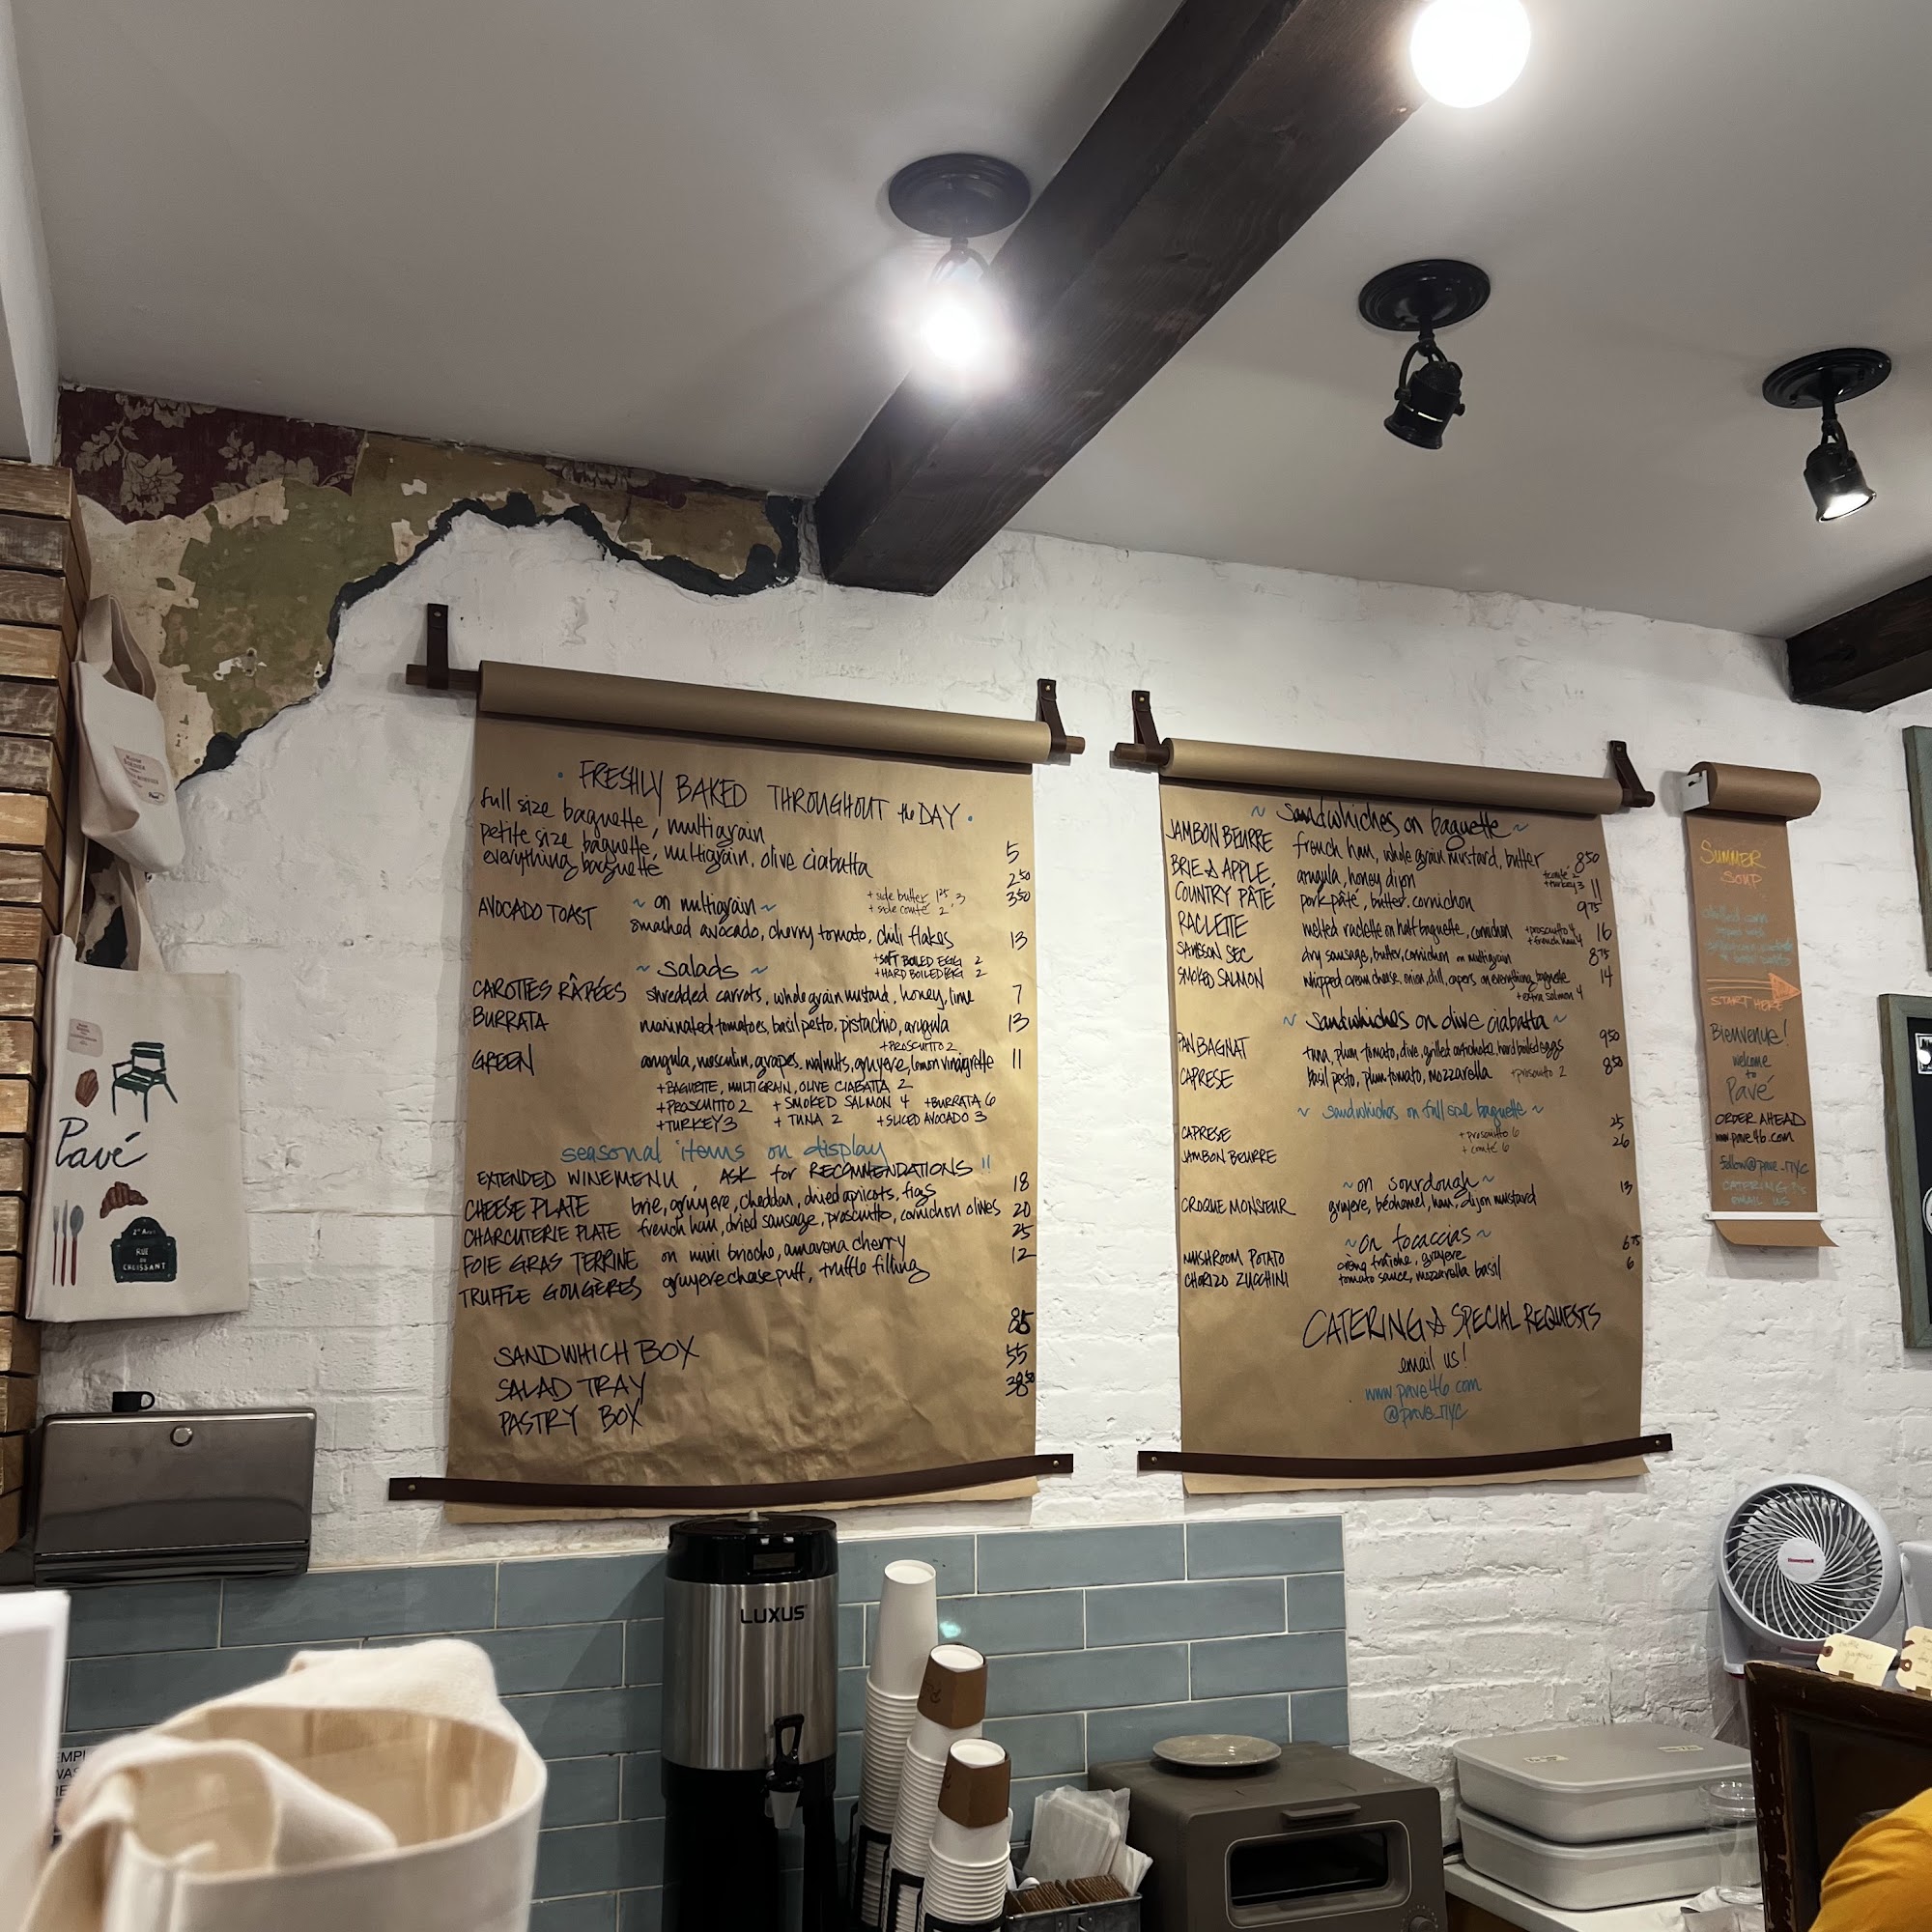 • FRESHLY BAKED THROUGHOUT the DAY •
full size baguette, multigrain 5
petite size baguette, multigrain, olive ciabatta 2⁵⁰
everything baguette 3⁵⁰
~ on multigrain ~
+ side butter 1²⁵, 3
+ side comté 2
AVOCADO TOAST smashed avocado, cherry tomato, chili flakes 13
+SOFT BOILED EGG 2
+HARD BOILED EGG 2
~ salads ~
CAROTTES RÂPÉES shredded carrots, whole grain mustard, honey, lime 7
BURRATA marinated tomatoes, basil pesto, pistachio, arugula 13
+PROSCIUTTO 2
GREEN arugula, mesculin, grapes, walnuts, gruyere, lemon vinaigrette 11
+BAGUETTE, MULTIGRAIN, OLIVE CIABATTA 2
+PROSCIUTTO 2 + SMOKED SALMON 4 +BURRATA 6
+TURKEY 3 + TUNA 2 +SLICED AVOCADO 3
seasonal items on display
EXTENDED WINE MENU, ASK for RECOMMENDATIONS !!
CHEESE PLATE brie, gruyere, cheddar, dried apricots, figs 18
CHARCUTERIE PLATE french ham, dried sausage, prosciutto, cornichon olives 20
FOIE GRAS TERRINE on mini brioche, amarena cherry 25
TRUFFLE GOUGÈRES gruyere chase puff, truffle filling 12
SANDWHICH BOX 85
SALAD TRAY 55
PASTRY BOX 38⁵⁰
~ Sandwhiches on baguette ~
JAMBON BEURRE french ham, whole grain mustard, butter 8⁵⁰
+comté 2
+turkey 3
BRIE & APPLE, arugula, honey dijon 11
COUNTRY PÂTÉ pork pâté, butter, cornichon 9⁷⁵
RACLETTE melted raclette on half baguette, cornichon +prosciutto 4 16
+french ham 4
SAUSSON SEC dry sausage, butter, cornichon on multigrain 8⁷⁵
SMOKED SALMON whipped cream cheese, onion, dill, capers on everything baguette 14
+extra salmon 4
~ Sandwhiches on olive ciabatta ~
PAN BAGNAT tuna, plum tomato, olive, grilled artichoke, hard boiled eggs 9⁵⁰
CAPRESE basil pesto, plum tomato, mozzarella +prosciutto 2 8⁵⁰
~ sandwhiches on full size baguette ~
CAPRESE + prosciutto 6 25
JAMBON BEURRE + comté 6 26
~on sourdough~
CROQUE MONSIEUR gruyere, béchamel, ham, dijon mustard 13
~on focaccias~
MUSHROOM POTATO crème fraîche, gruyere 6⁷⁵
CHORIZO ZUCCHINI tomato sauce, mozzarella basil 6
CATERING & SPECIAL REQUESTS
email us!
www.pave46.com
@pave_nyc
SUMMER
SOUP
chilled corn
START HERE
Bienvenue!
welcome
to
Pavé
ORDER AHEAD
www.pave46.com
follow@pave_nyc
CATERING?
EMAIL US
Pavé
2e Arrt
RUE
DU
CROISSANT
LUXUS
Honeywell